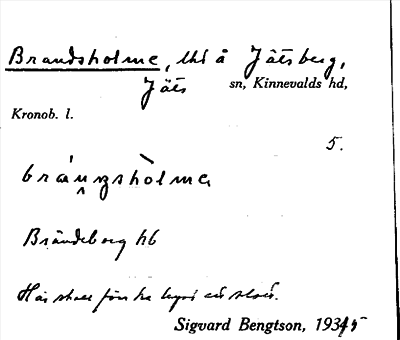 Brandsholme, th å Jätsberg,
Jäts sn, Kinnevalds hd,
Kronob. l.
5.
bráṇnzshòlma
Brändeberg hb
Här skall förr ha legat ett slott.
Sigvard Bengtson, 1935